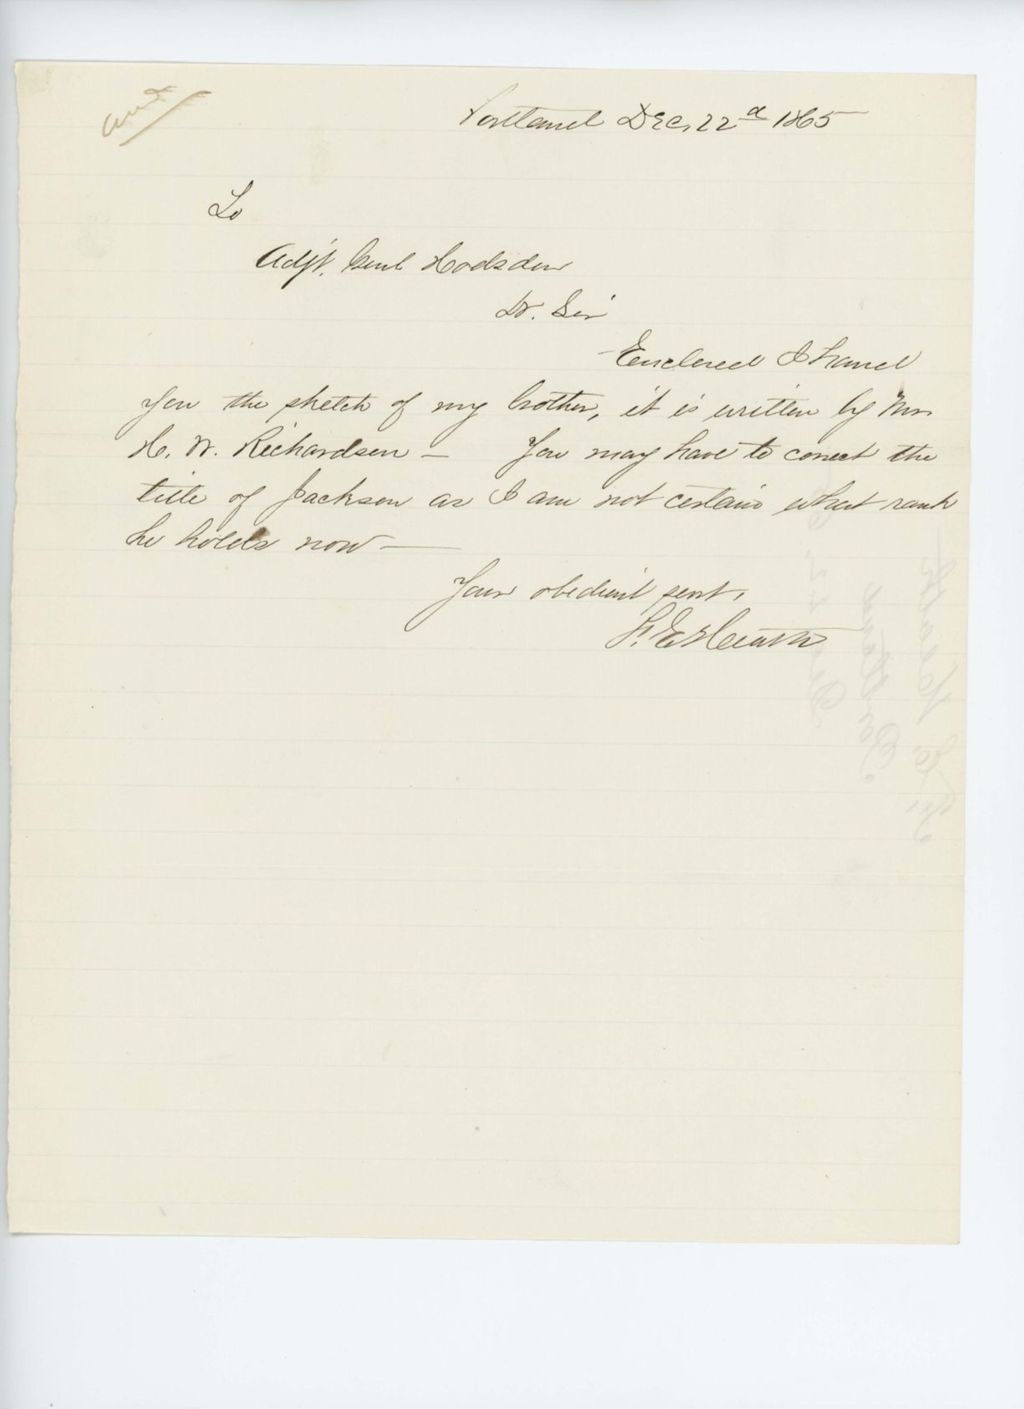 ansd
Portland Dec, 22d 1865
To
Adjt. Genl Hodsdon
Dr. Sir
Enclosed I hand
you the sketch of my brother, it is written by Mr.
H. W. Richardson — You may have to correct the
title of Jackson as I am not certain what rank
he holds now —
Your obedient servt,
F. E. Heath